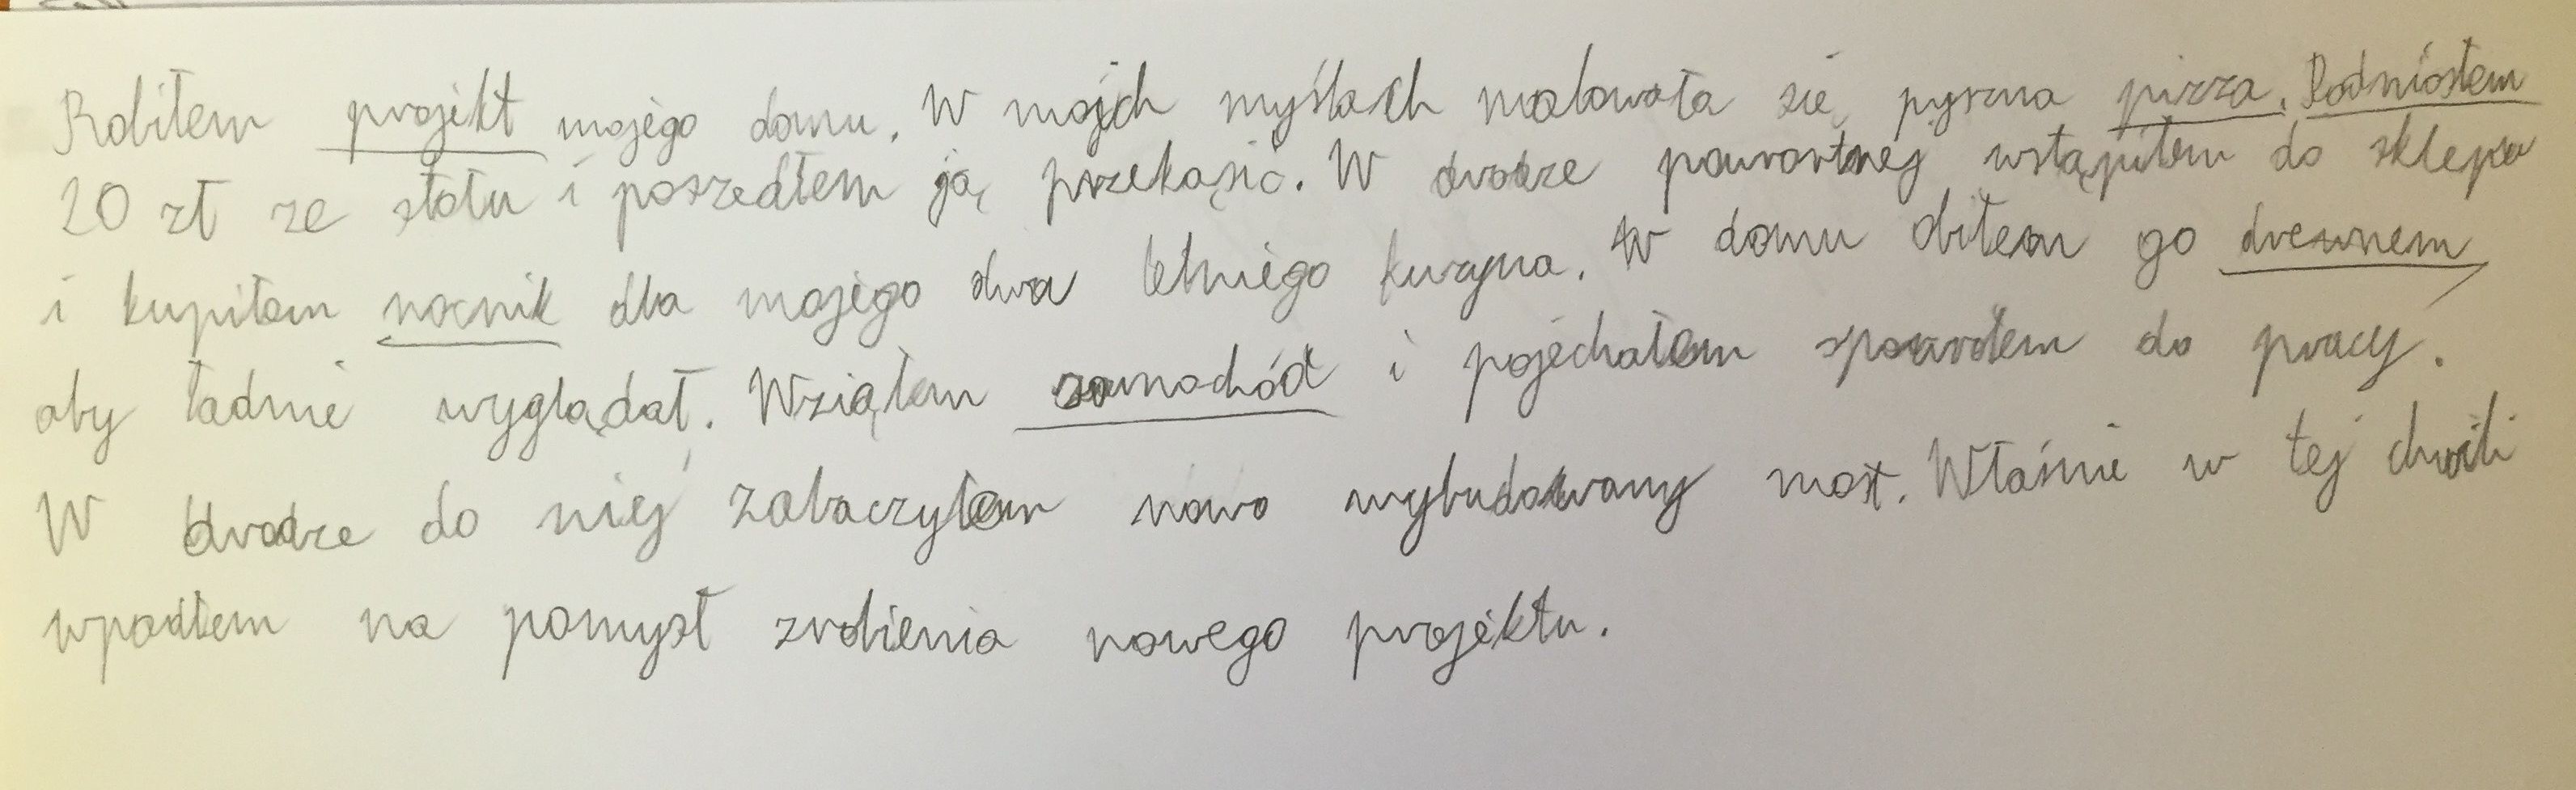 Robiłem projekt mojego domu. W mojch myślach malowała się pyszna pizza. Podniosłem
20 zł ze stołu i poszedłem ją przekąsić. W drodze powrortnej wstąpiłem do sklepu
i kupiłem nocnik dla mojego dwa letniego kuzyna. W domu obiłem go drewnem
aby ładnie wyglądał. Wziąłem samochód i pojechałem spowrotem do pracy.
W drodze do niej zobaczyłem nowo wybudowany most. Właśnie w tej chwili
wpadłem na pomysł zrobienia nowego projektu.